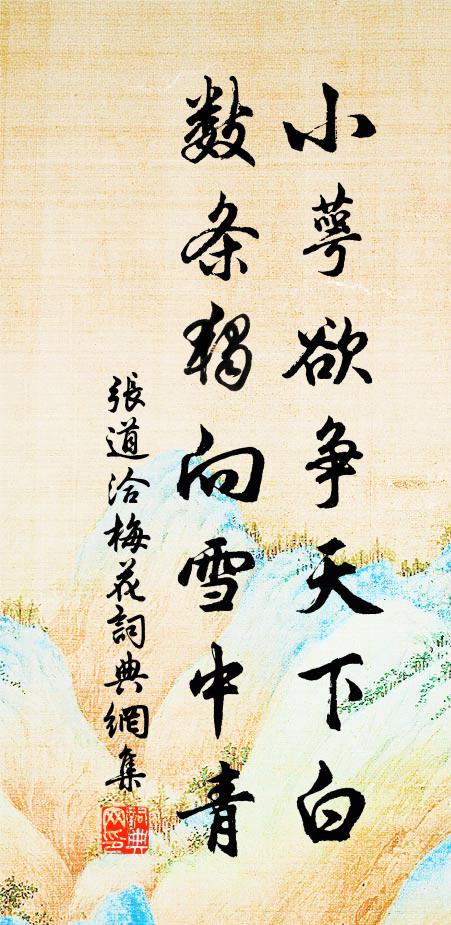 小萼欲争天下白
数条獨向雪中青
張道洽梅花詞典網集
詞典